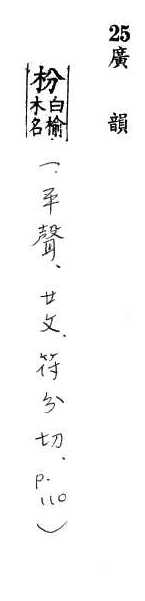 25 廣韻
枌 白榆.木名
(平聲、廿文、符分切、p.110)